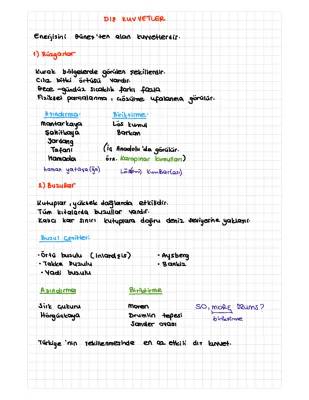 DIŞ KUVVETLER
Enerjisini Güneş'ten alan kuvvetlerdir.
1) Rüzgarlar
Kurak bölgelerde görülen şekillerdir.
Cılız bitki örtüsü vardır.
Gece - gündüz sıcaklık farkı fazla
Fiziksel parçalanma, çözülme ufalanma görülür.
Aşındırma: Biriktirme:
Mantarkaya Lös kumul
Şahitkaya Barkan
Yardang
Tafoni (İç Anadolu'da görülür.
Hamada örn. Karapınar kumulları)
2) Buzullar
Kutuplar, yüksek dağlarda etkilidir.
Tüm kıtalarda buzullar vardır.
Kalıcı kar sınırı kutuplara doğru deniz seviyesine yaklaşır.
Buzul Çeşitleri
• Örtü buzulu (Inlandsis) • Aysberg
• Takke buzulu • Bankiz
• Vadi buzulu
Aşındırma Biriktirme
Sirk çukuru moren SO, MORE DRUMS?
Hörgüçkaya Drumlin tepesi biriktirme
Sander ovası
Türkiye'nin şekillenmesinde en az etkili dış kuvvet.